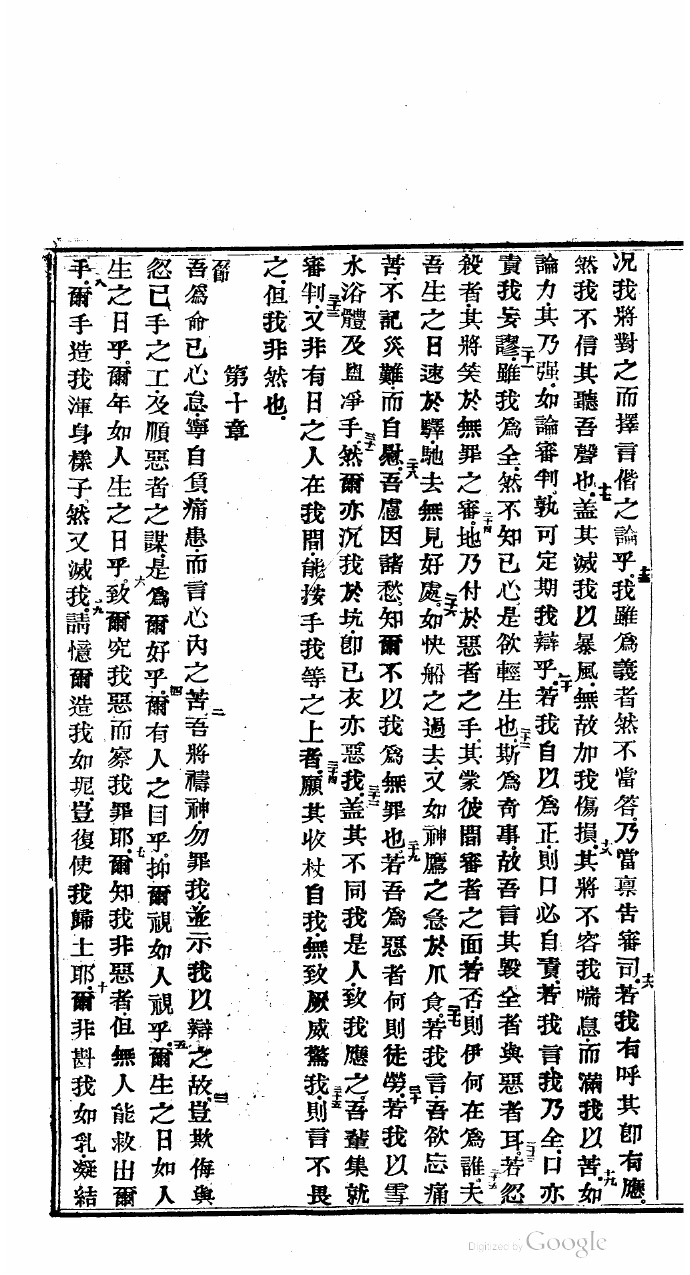 况我將對之而擇言偕之論乎。十五我雖為義者然不當答。乃當禀告審司。十六若我有呼其卽有應。
然我不信其聽吾聲也。十七盖其滅我以暴風。無故加我傷損。十八其將不容我喘息。而滿我以苦。十九如
論力其乃强。如論審判。孰可定期我辯乎。二十若我自以為正。則口必自責。若我言我乃全。口亦
責我妄謬。二十一雖我為全。然不知已心。是欲輕生也。二十二斯為奇事。故吾言其毀全者與惡者耳。二十三若忽
殺者。其將笑於無罪之審。二十四地乃付於惡者之手。其蒙彼間審者之面。若否。則伊何在為誰。二十五夫
吾生之日速於驛。馳去無見好處。二十六如快船之過去。又如神鷹之急於爪食。二十七若我言。吾欲忘痛
苦。不記災難。而自慰。二十八吾慮因諸愁。知爾不以我為無罪也。二十九若吾為惡者何則徒勞。三十若我以雪
水浴體及盥凈手。三十一然爾亦沉我於坑。卽已衣亦惡我。三十二盖其不同我是人。致我應之。吾輩集就
審判。三十三又非有日之人在我間。能按手我等之上者。三十四願其收杖自我。無致厥威驚我。三十五則言不畏
之。但我非然也。
第十章
吾為命已心息。寧自負痛患。而言心內之苦。二吾將禱神。勿罪我。並示我以辯之故。三豈欺侮與
忽已手之工。及順惡者之謀。是為爾好乎。四爾有人之目乎。抑爾視如人視乎。五爾生之日如人
生之日乎。爾年如人生之日乎。六致爾究我惡而察我罪耶。七爾知我非惡者。但無人能救出爾
手。八爾手造我渾身樣子。然又滅我。九請憶爾造我如坭。豈復使我歸土耶。十爾非斟我如乳。凝結
Digitized by Google